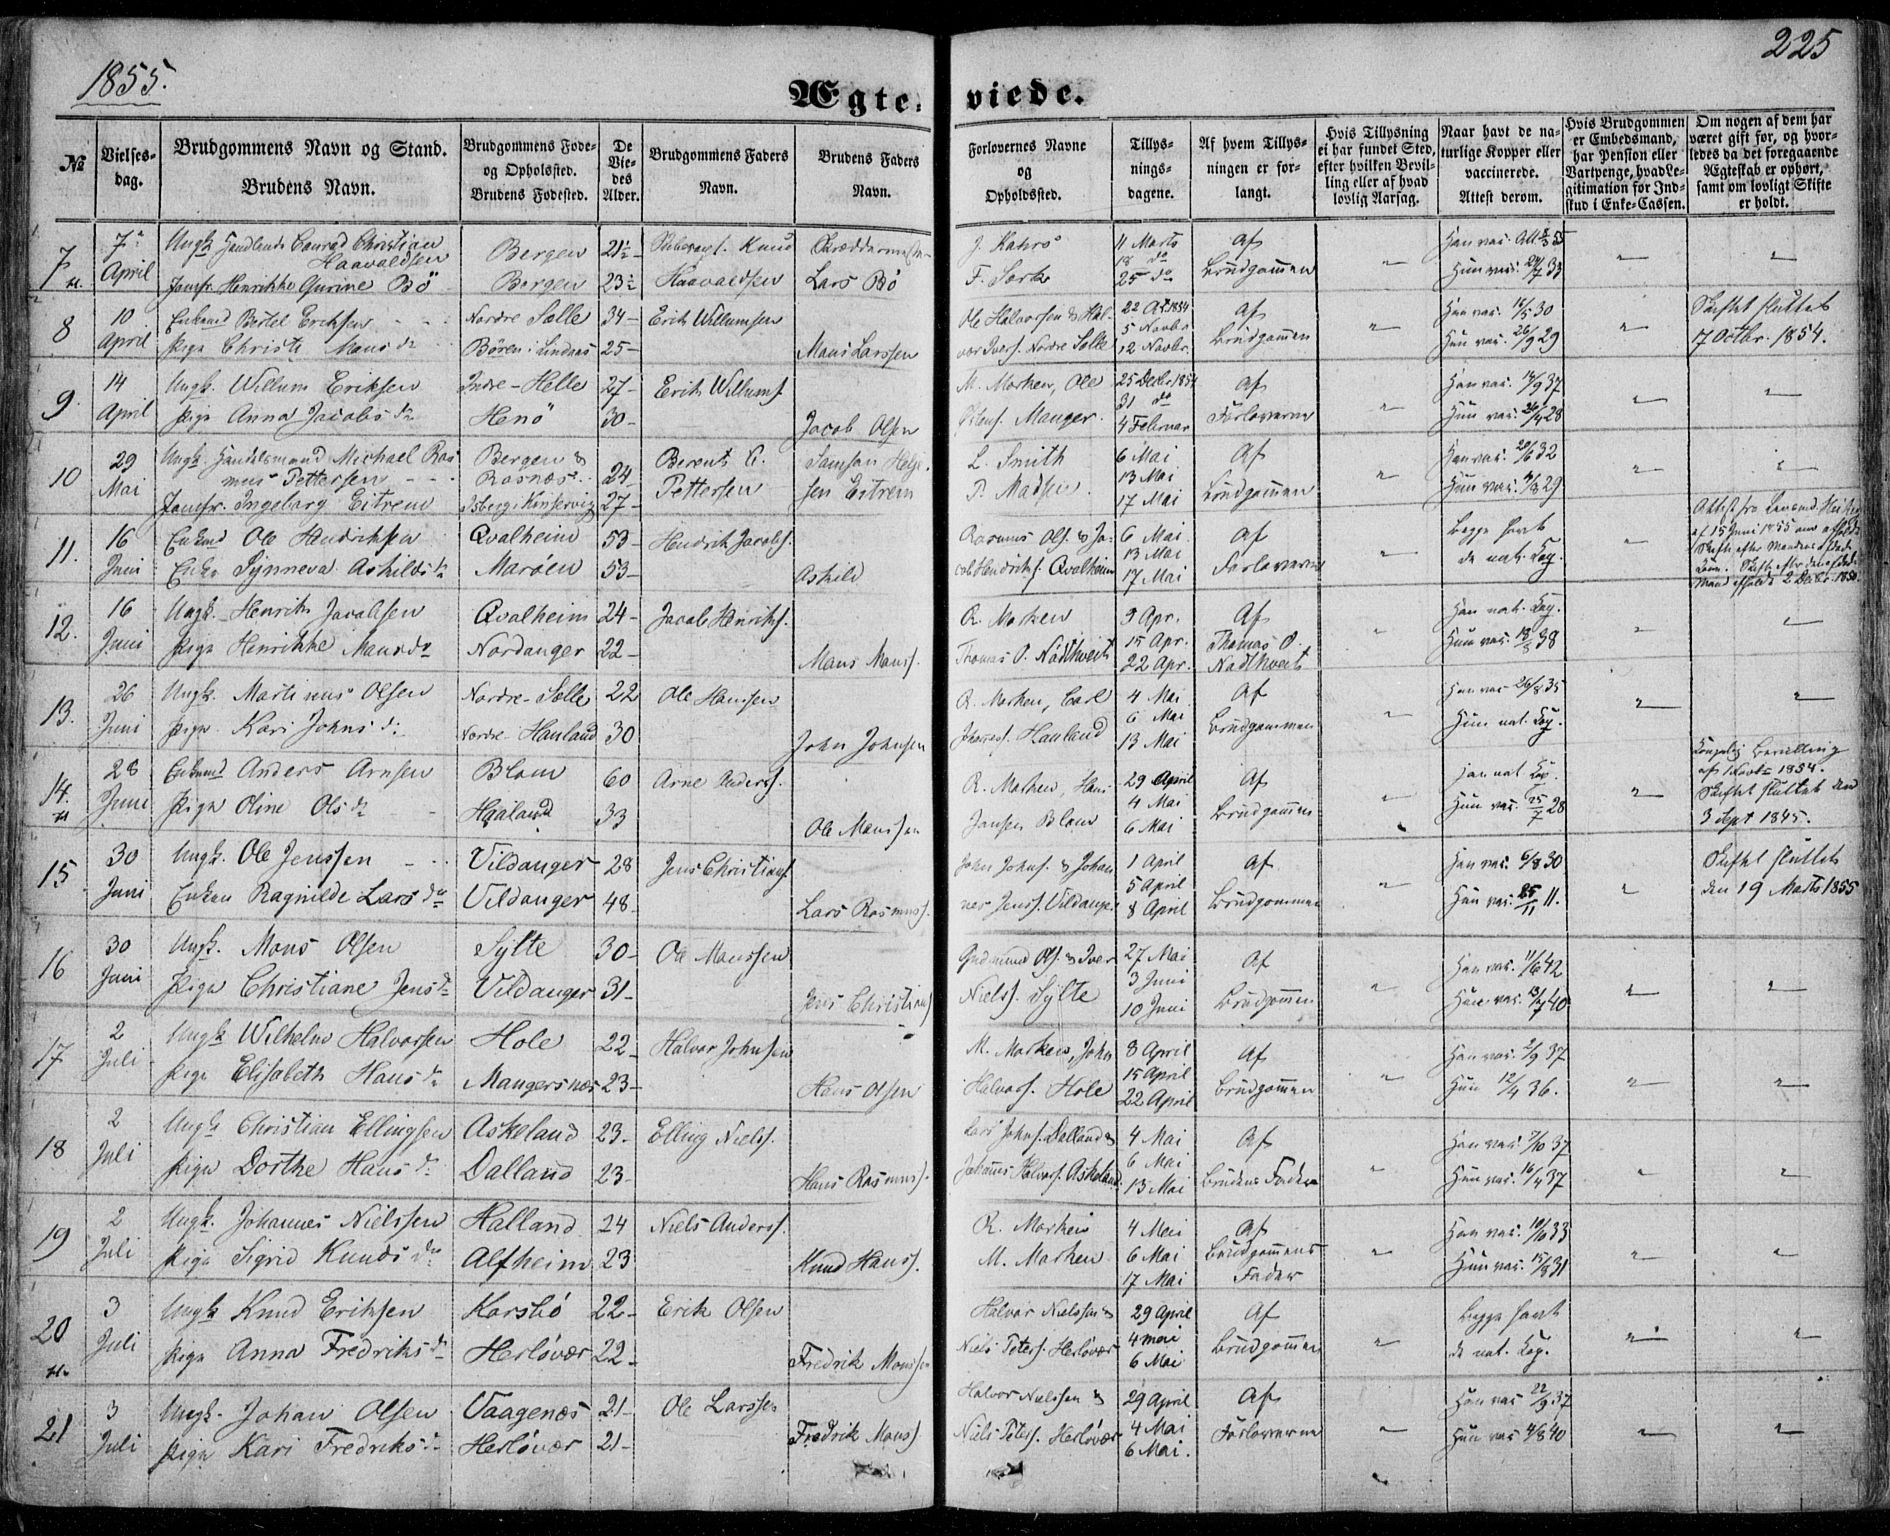 1855.
225
Ægteviede.
№
Vielses-
dag.
Brudgommens Navn og Stand.
Brudens Navn.
Brudgommens Føde-
og Opholdsted.
Brudens Fødested.
De
Vie-
des
Alder.
Brudgommens Faders
Navn.
Brudens Faders
Navn.
Forlovernes Navne
og
Opholdssted.
Tillys-
nings-
dagene.
Af hvem Tillys-
ningen er for-
langt.
Hvis Tillysning
ei har fundet Sted,
efter hvilken Bevil-
ling eller af hvad
lovlig Aarsag.
Naar havt de na-
turlige Kopper eller
vaccinerede.
Attest derom.
Hvis Brudgommen
er Embedsmand,
har Pension eller
Vartpenge, hvad Le-
gitimation for Ind-
skud i Enke-Cassen.
Om nogen af dem har
været gift før, og hvor-
ledes da det foregaaende
Ægteskab er ophørt,
samt om lovligt Skifte
er holdt.
7 7de April
Ungk. Conrad Christian Haavaldsen Bergen 21½ Knud Haavaldsen
Jomfr. Henrikke Gurine Bö Bergen 23½ Lars Bö
11 Marts 18 do 25 do Af Brudgommen Hun vac. 24/7 33
8 10 April
Enkemd Bertel Eriksen Nordre Sælle 34 Erik Willumsen
Pige Christi Mansdr Bören i Lindaas 25 Mans Larssen
Ole Halvorsen & Halvor Ivers. Nordre Sælle 22 Oct 1854 5 Novbr 12 Novbr. Af Brudgommen Han vac. 16/5 30 Hun vac. 26/9 29 Skiftet sluttet 17 Octbr. 1854.
9 14 April
Ungk. Willum Eriksen Indre-Helle 27 Erik Willums.
Pige Anna Jacobsdr Henö 30 Jacob Olsen
M. Marken, Ole Manger. 25 Decbr 1854 31 do 4 Februar Af Forloverne Han vac. 14/9 37 Hun vac. 28
10 29 Mai
Ungk. Handelsmand Michael Rasmus Pettersen Bergen & Rosnæs 24 Berent Pettersen
Jomfr. Ingeborg Eitrem Kinservig 27 Samson Helgesen Eitrem
L. Smith P. Madsen 6 Mai 13 Mai 17 Mai Af Brudgommen Han vac. 29/6 32 Hun vac. 29
11. 16 Juni
Enkemd Ole Hendriksen Qvalheim 53 Hendrik Jacobs.
Enke Synneva Askildsdr Maröen 53 Askild
Rasmus Ols. & Jacob Hendriks. Qvalheim 6 Mai 13 Mai 17 Mai Af Forloverne Begge havt de nat. Kop.
12. 16 Juni
Ungk. Henrik Jacobsen Qvalheim 24 Jacob Henriks.
Pige Henrikke Mansdr Nordanger 22 Mans Mans.
R. Marken Thomas O. Nådthveit 9 Apr. 15 Apr. 22 Apr. Af Thomas O. Nådthveit Han nat. Kop. Hun vac. 38
13. 26 Juni
Ungk. Martinus Olsen Nordre-Sælle 22 Ole Hansen
Pige Kari Johnsdr Nordre-Hanland 30 John Johnsen
R. Marken, Carl Johanns. Hanland 4 Mai 6 Mai 13 Mai Af Brudgommen Han vac. 26/8 35 Hun nat. Kop.
14. 28 Juni
Enkemd Anders Arnsen Blom 60 Arne Anders.
Pige Oline Olsdr Haaland 33 Ole Manssen
R. Marken, Hans Jansen Blom 29 April 4 Mai 6 Mai Af Brudgommen Han nat. Kop. Hun vac. 25/7 28 Kongelig Bevilling af Novbr 1854. Skiftet sluttet den 3 Sept 1845.
15 30 Juni
Ungk. Ole Jenssen Vildanger 28 Jens Christians.
Enken Ragnilde Larsdr Vildanger 48 Lars Rasmus.
John Johns. & Johannes Jens. Vildanger 1 April 5 April 8 April Af Brudgommen Han vac. 6/8 30 Hun vac. 25/11 11. Skiftet sluttet den 19 Marts 1855
16 30 Juni
Ungk. Mons Olsen Sylte 30 Ole Monssen
Pige Christiane Jensdr Vildanger 31 Jens Christians.
Gudmund Ols. & Iver Niels. Sylte 27 Mai 3 Juni 10 Juni Af Brudgommen Han vac. 11/6 42 Hun vac. 13/7 40
17 2 Juli
Ungk Wilhelm Halvorsen Hole 22 Halvor Johnsen
Pige Elisabeth Hansdr Mangersnæs 23 Hans Olsen
M. Marken, John Halvors. Hole 8 April 15 April 22 April Af Brudgommen Han vac. 2/9 37 Hun 12/4 36.
18 2 Juli
Ungk Christian Ellingsen Askeland 23 Elling Niels.
Pige Dorthe Hansdr Dalland 23 Hans Rasmus.
Lars Johns. Dalland & Johannes Halvors. Askeland 4 Mai 6 Mai 13 Mai Af Brudens Fader Han vac. 7/10 37 Hun vac. 16/4 37
19 2 Juli
Ungk. Johannes Nielssen Halland 24 Niels Anders.
Pige Sigrid Knudsdr Alfheim 23 Knud Hans.
R. Marken M. Marken 4 Mai 6 Mai 17 Mai Af Brudgommens Fader Han vac. 10/10 33 Hun vac. 15/8 31
20 3 Juli
Ungk Knud Eriksen Karsbö 22 Erik Olsen
Pige Anna Fredriksdr Herlövær 22 Fredrik Monssen
Halvor Nielssen & Niels Peters. Herlövær 29 April 4 mai 6 Mai Af Brudgommen Begge havt de nat. Kop.
21 3 Juli
Ungk. Johan Olsen Vaagenæs 21 Ole Larssen
Pige Kari Fredriksdr Herlövær 21 Fredrik Mons.
Halvor Nielssen & Niels Peters. Herlövær 29 April 4 Mai 6 Mai. Af Forloverne Han vac 22/9 37 Hun vac 4/8 40